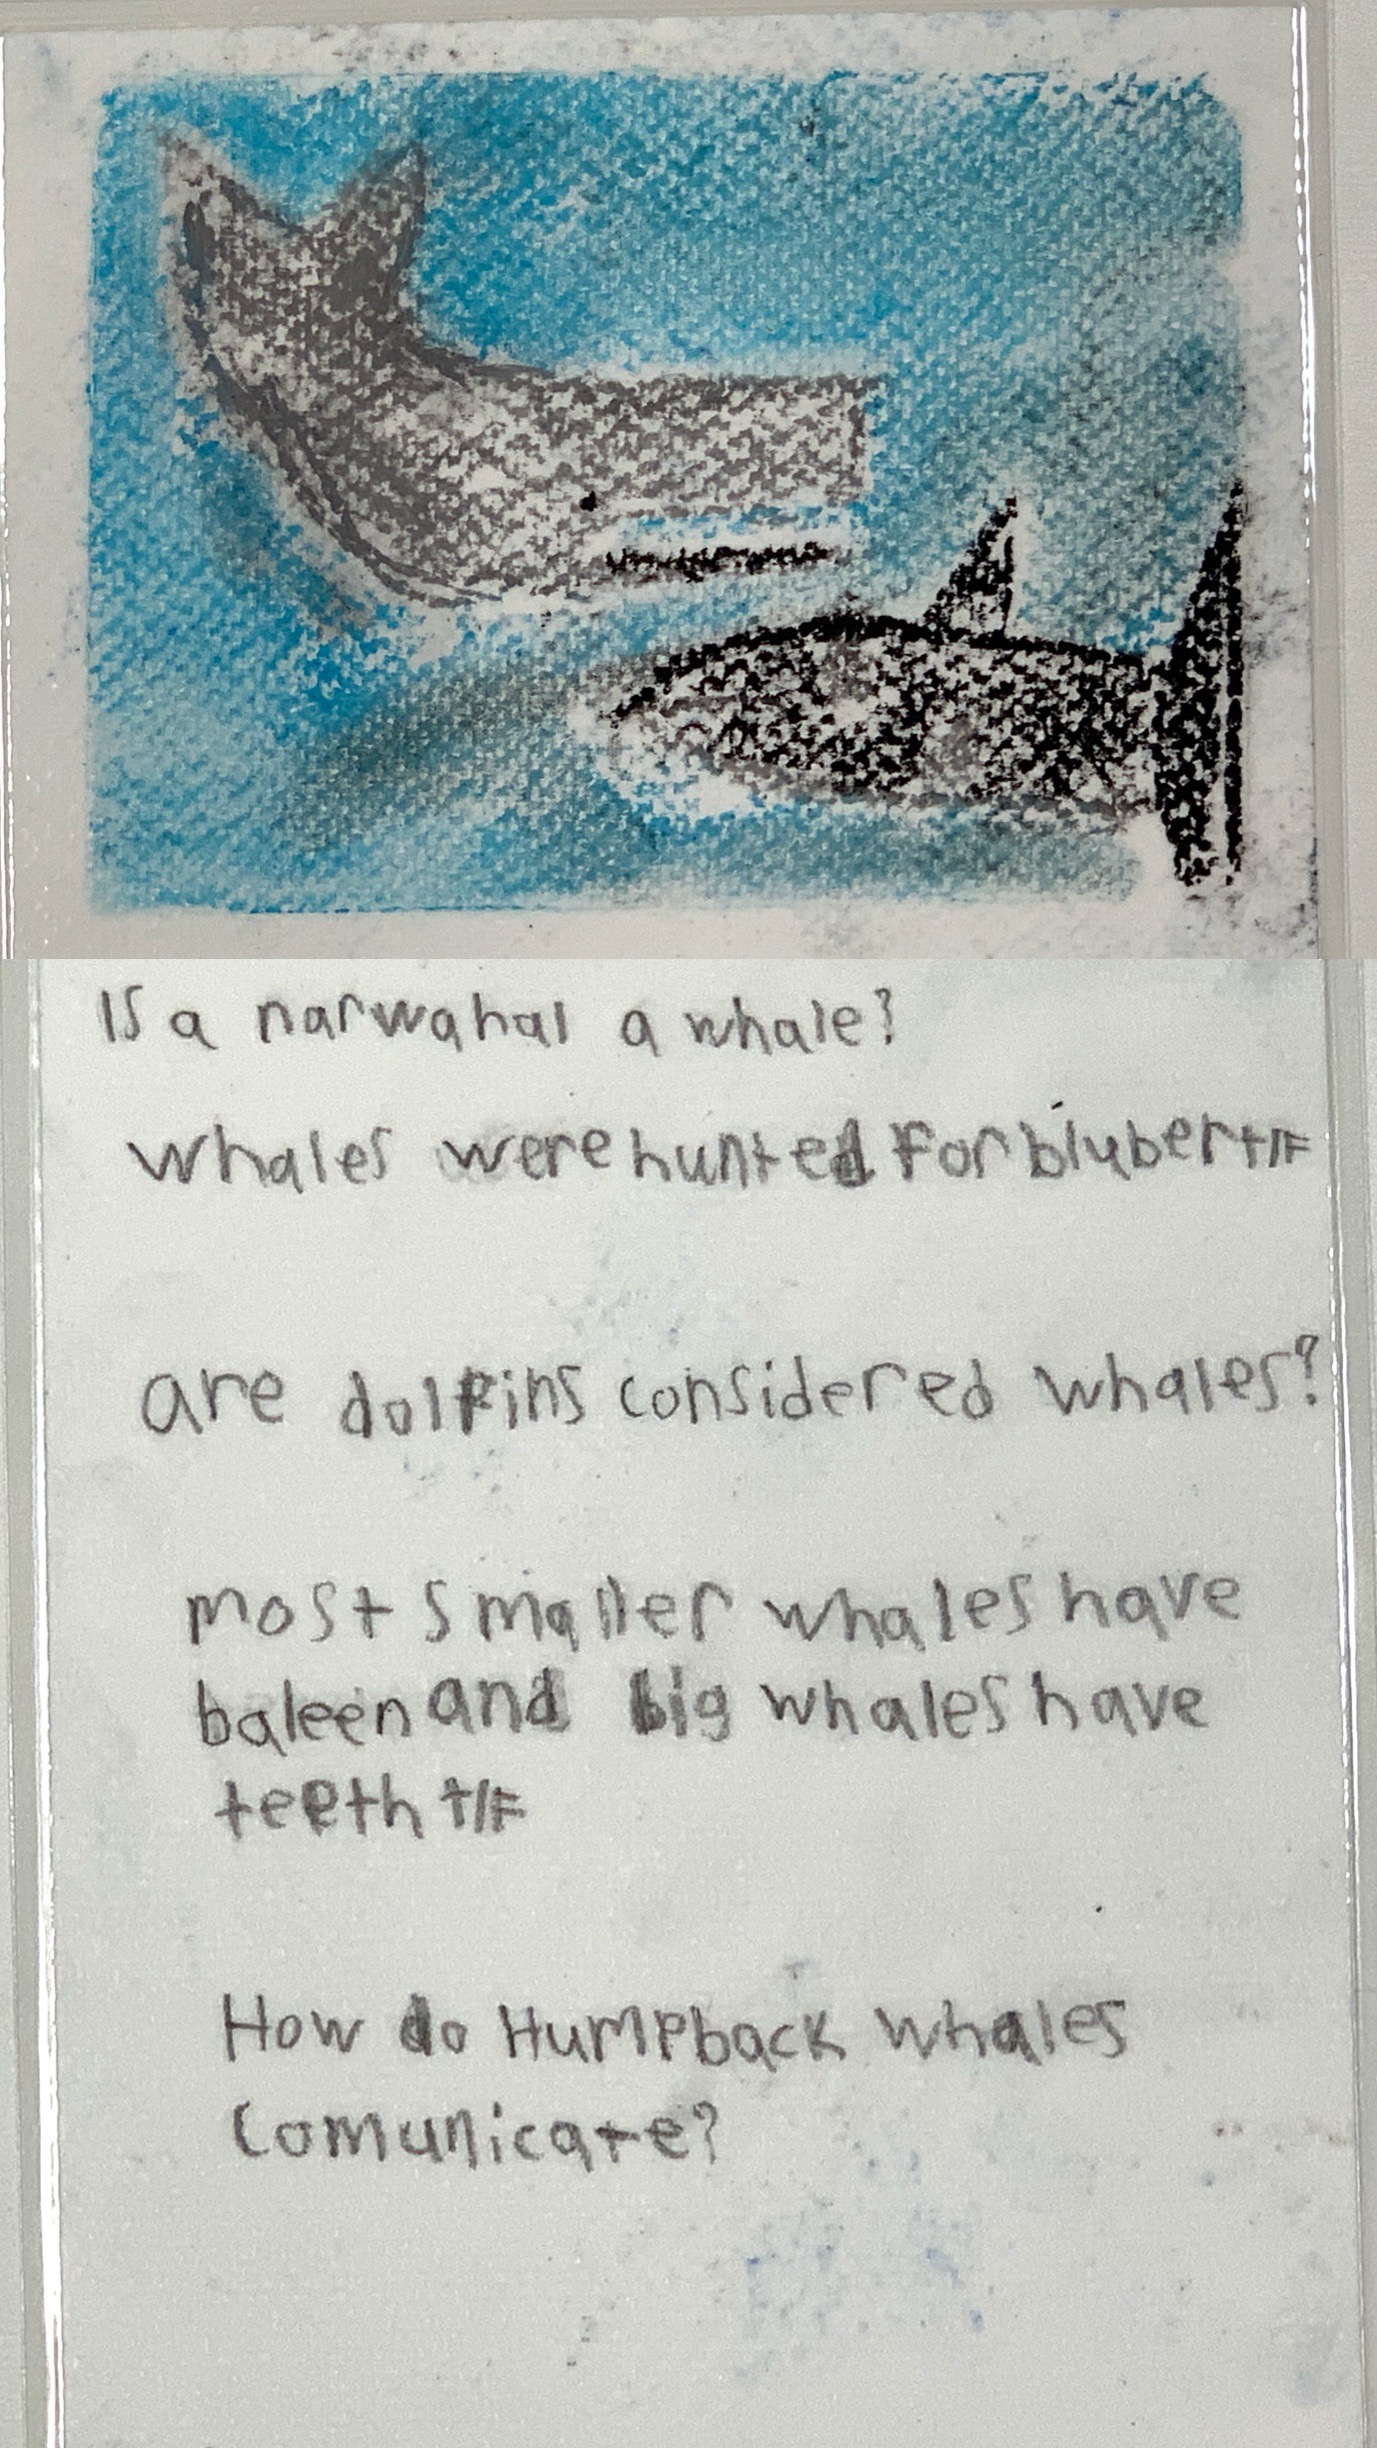 Is a narwahal a whale?
Whales were hunted for bluber t/F
are dolfins considered whales?
most smaller whales have
baleen and big whales have
teeth t/F
How do Humpback whales
Comunicate?